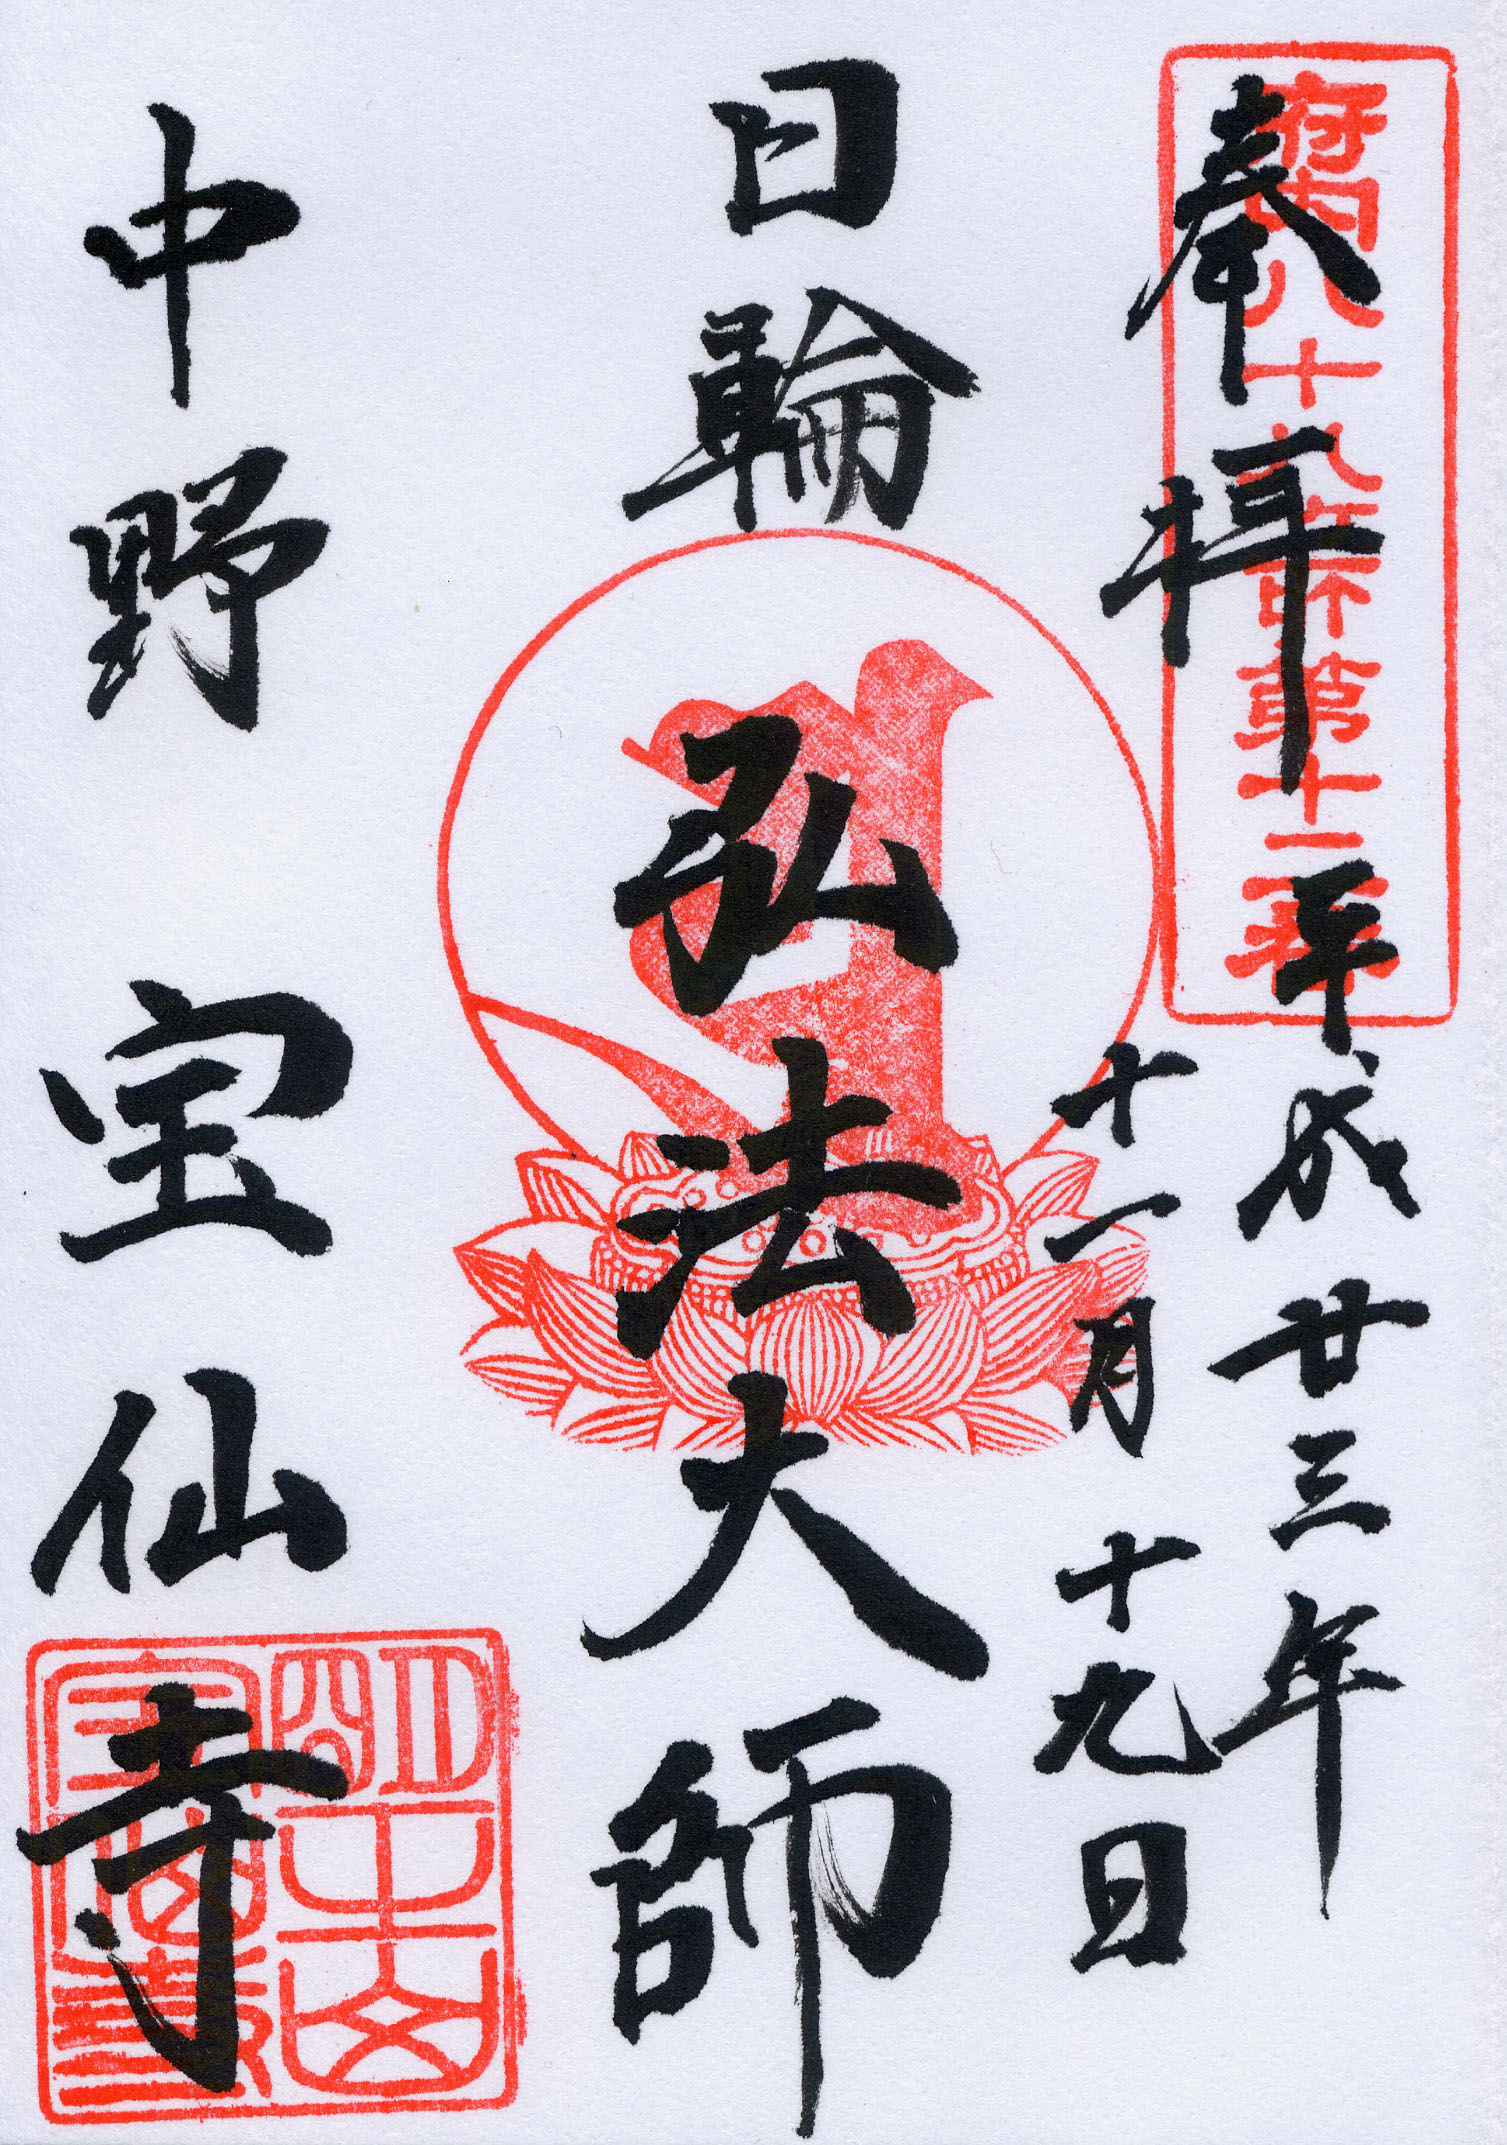 奉拝
府内八十八ケ所第十二番
平成廿三年
十一月十九日
日輪
弘法大師
中野
宝仙寺